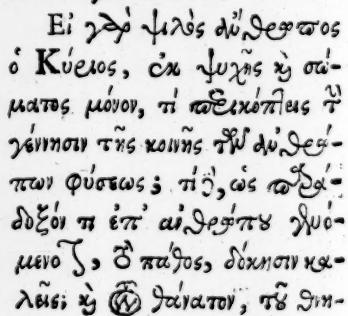 Εἰ γὰρ ψιλὸς ἄνθρωπος
ὁ Κύριος, ἐκ ψυχῆς καὶ σώ-
ματος μόνον, τί περικόπτεις τὴν
γέννησιν τῆς κοινῆς τῶν ἀνθρώ-
πων φύσεως; τί δὲ, ὡς παρά-
δοξόν τι ἐπ' ἀνθρώπου γινό-
μενον, τὸ πάθος, δόκησιν κα-
λεῖς; καὶ τὸν θάνατον, τοῦ θνη-